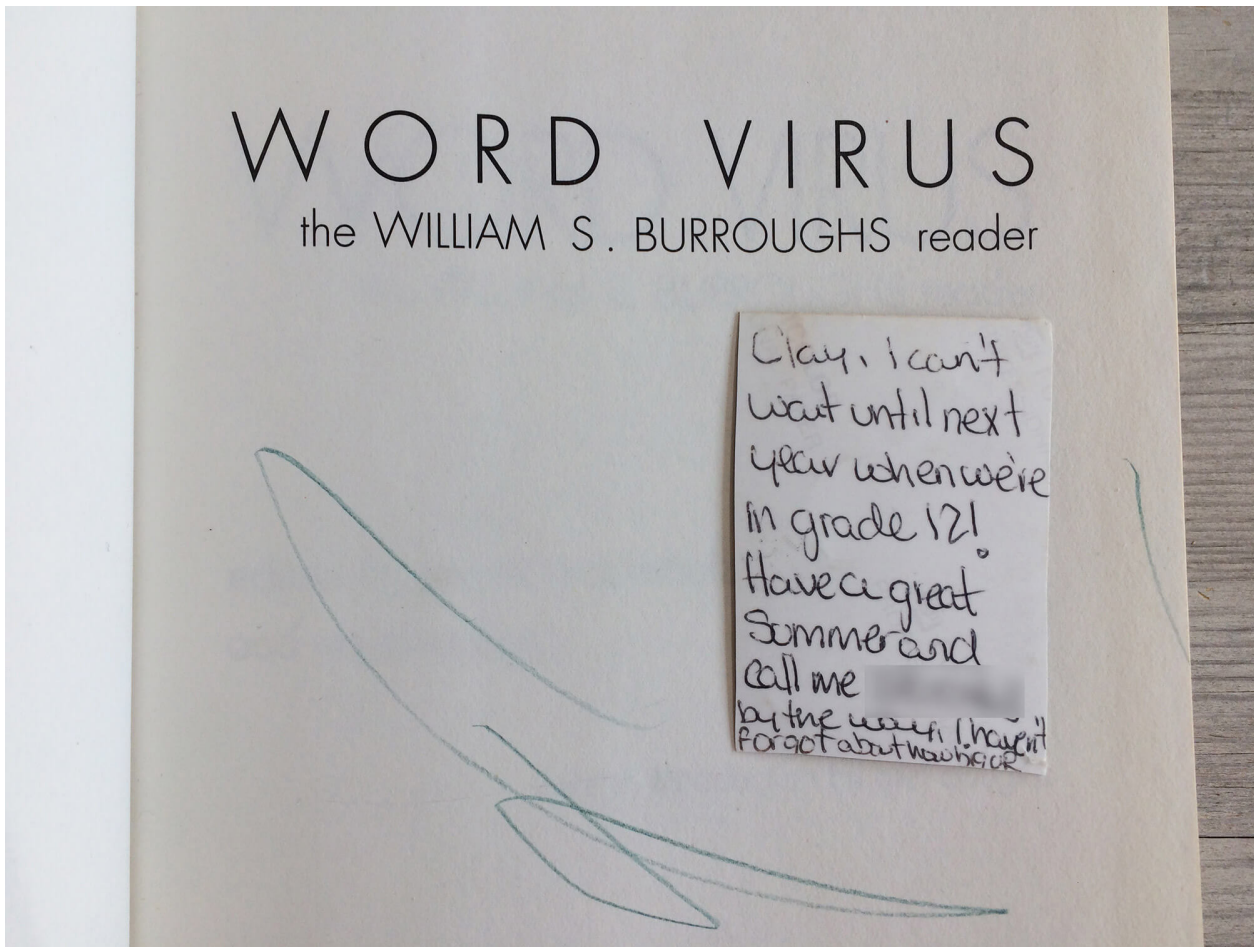 WORD VIRUS
the WILLIAM S. BURROUGHS reader
Clay, I can't
wait until next
year when we're
in grade 12!
Have a great
Summer and
call me
by the way, I haven't
forgot about